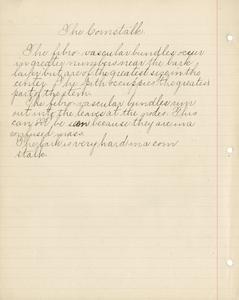 The Cornstalk.
The fibro-vascular bundles occur
in greater numbers near the bark
larger but are of the greatest size in the
center. The pith occupies the greatest
part of the stem.
The fibro-vascular bundles run
out into the leaves at the nodes. This
can not be seen because they are in a
confused mass.
The bark is very hard in a corn
stalk.